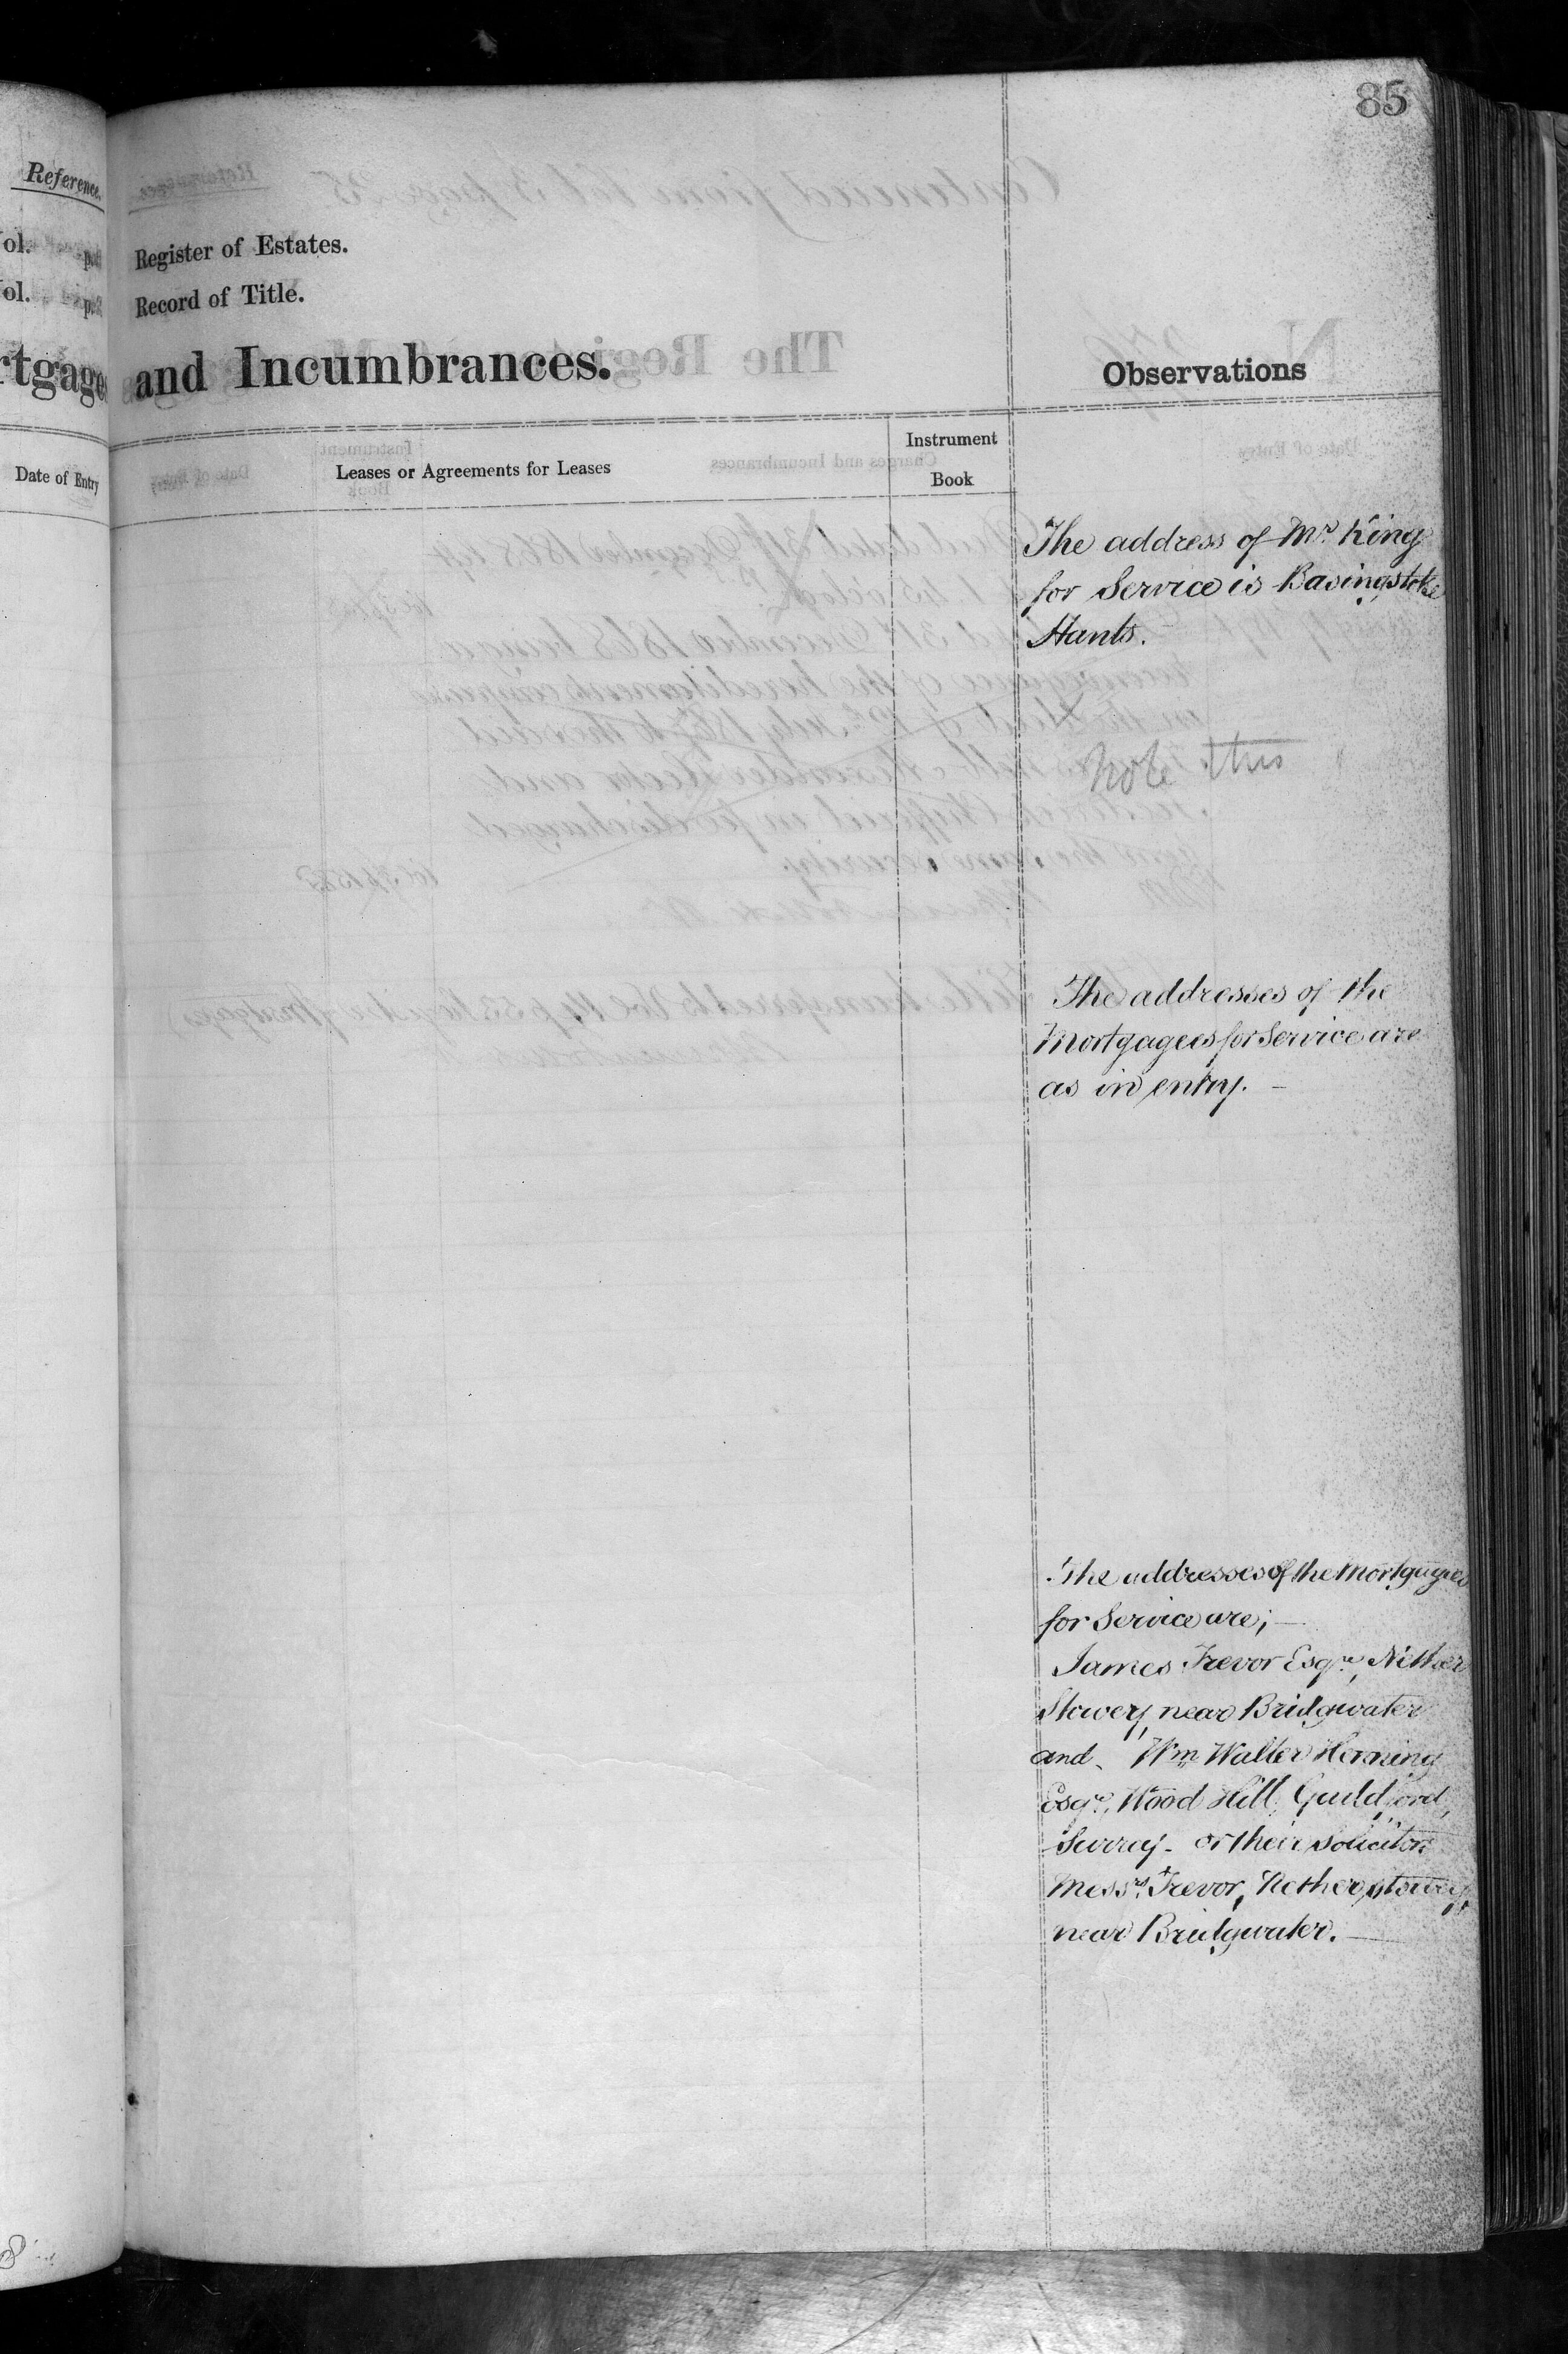 85
Reference.
ol.
ol.
rtgage
Date of Entry
Register of Estates.
Record of Title.
and Incumbrances.
Observations
Leases or Agreements for Leases
Instrument
Book
The address of Mr. King
for Service is Basingstoke
Hants.
Note this
The addresses of the
Mortgagees for Service are
as in entry. —
The addresses of the Mortgagees
for Service are; —
James Trevor Esqre, Nether
Stowey, near Bridgwater
and. Wm Walter Herring
Esqre, Wood Hill, Guildford,
Surrey - or their solicitors
Messrs. Trevor, Nether Stowey,
near Bridgwater. —